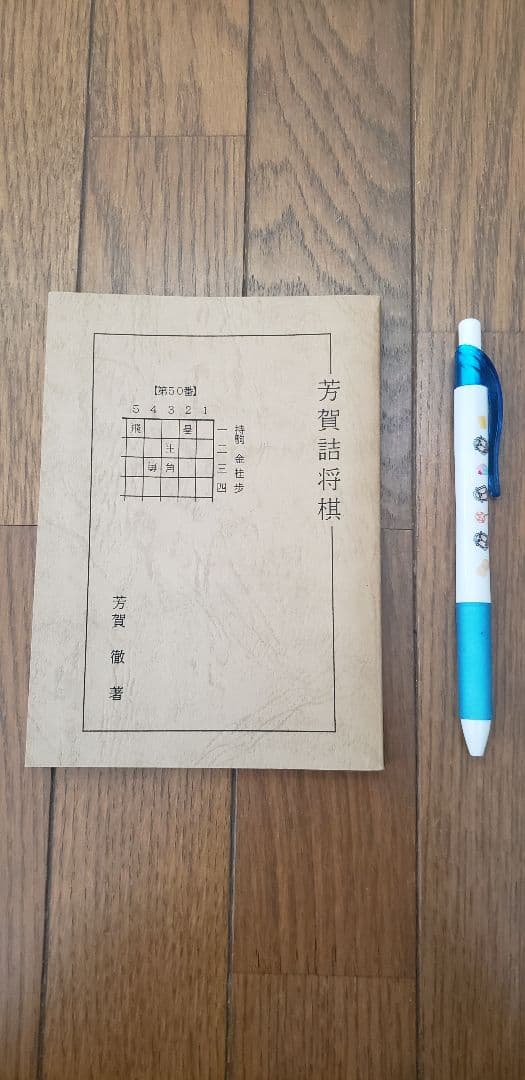 芳賀詰将棋
【第50番】
5 4 3 2 1
飛
角
一二三四
持駒 金桂歩
芳賀 徹 著